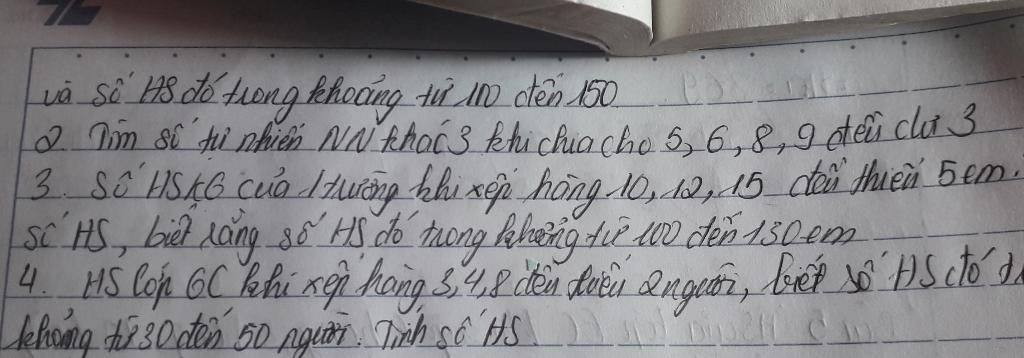 và số HS đó trong khoảng từ 100 đến 150
2. Tìm số tự nhiên NN khác 3 khi chia cho 5, 6, 8, 9 đều dư 3
3. Số HSKG của 1 trường khi xếp hàng 10, 12, 15 đều thiếu 5 em.
số HS, biết rằng số HS đó trong khoảng từ 100 đến 130 em
4. HS lớp 6C khi xếp hàng 3, 4, 8 đều thiếu 2 người, biết số HS đó
khoảng từ 30 đến 50 người. Tính số HS.